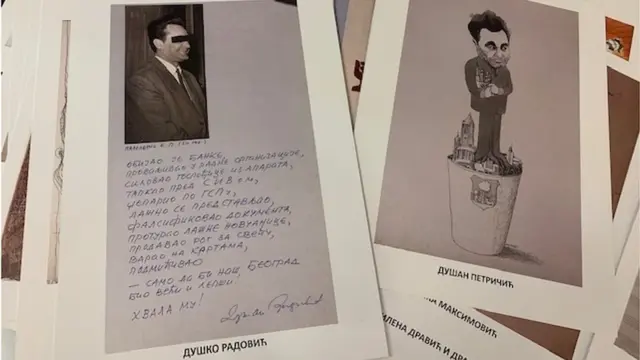 ОБИЈАО ЈЕ БАНКЕ,
ПРОВАЉИВАО У РАДНЕ ОРГАНИЗАЦИЈЕ,
СИЛОВАО ГОСПОЂИЦЕ ИЗ АПАРАТА,
ТАПКАО ПРЕД СИВ-ом,
ЏЕПАРИО ПО ГСП-у,
ЛАЖНО СЕ ПРЕДСТАВЉАО,
ФАЛСИФИКОВАО ДОКУМЕНТА,
ПРОТУРАО ЛАЖНЕ НОВЧАНИЦЕ,
ПРОДАВАО РОГ ЗА СВЕЋУ,
ВАРАО НА КАРТАМА,
ПОДМИЋИВАО
— САМО ДА БИ НАШ БЕОГРАД
БИО ВЕЋИ И ЛЕПШИ.
ХВАЛА МУ!
Душан Радовић
ДУШКО РАДОВИЋ
ДУШАН ПЕТРИЧИЋ
МАКСИМОВИЋ
ИЛЕНА ДРАВИЋ И ДР